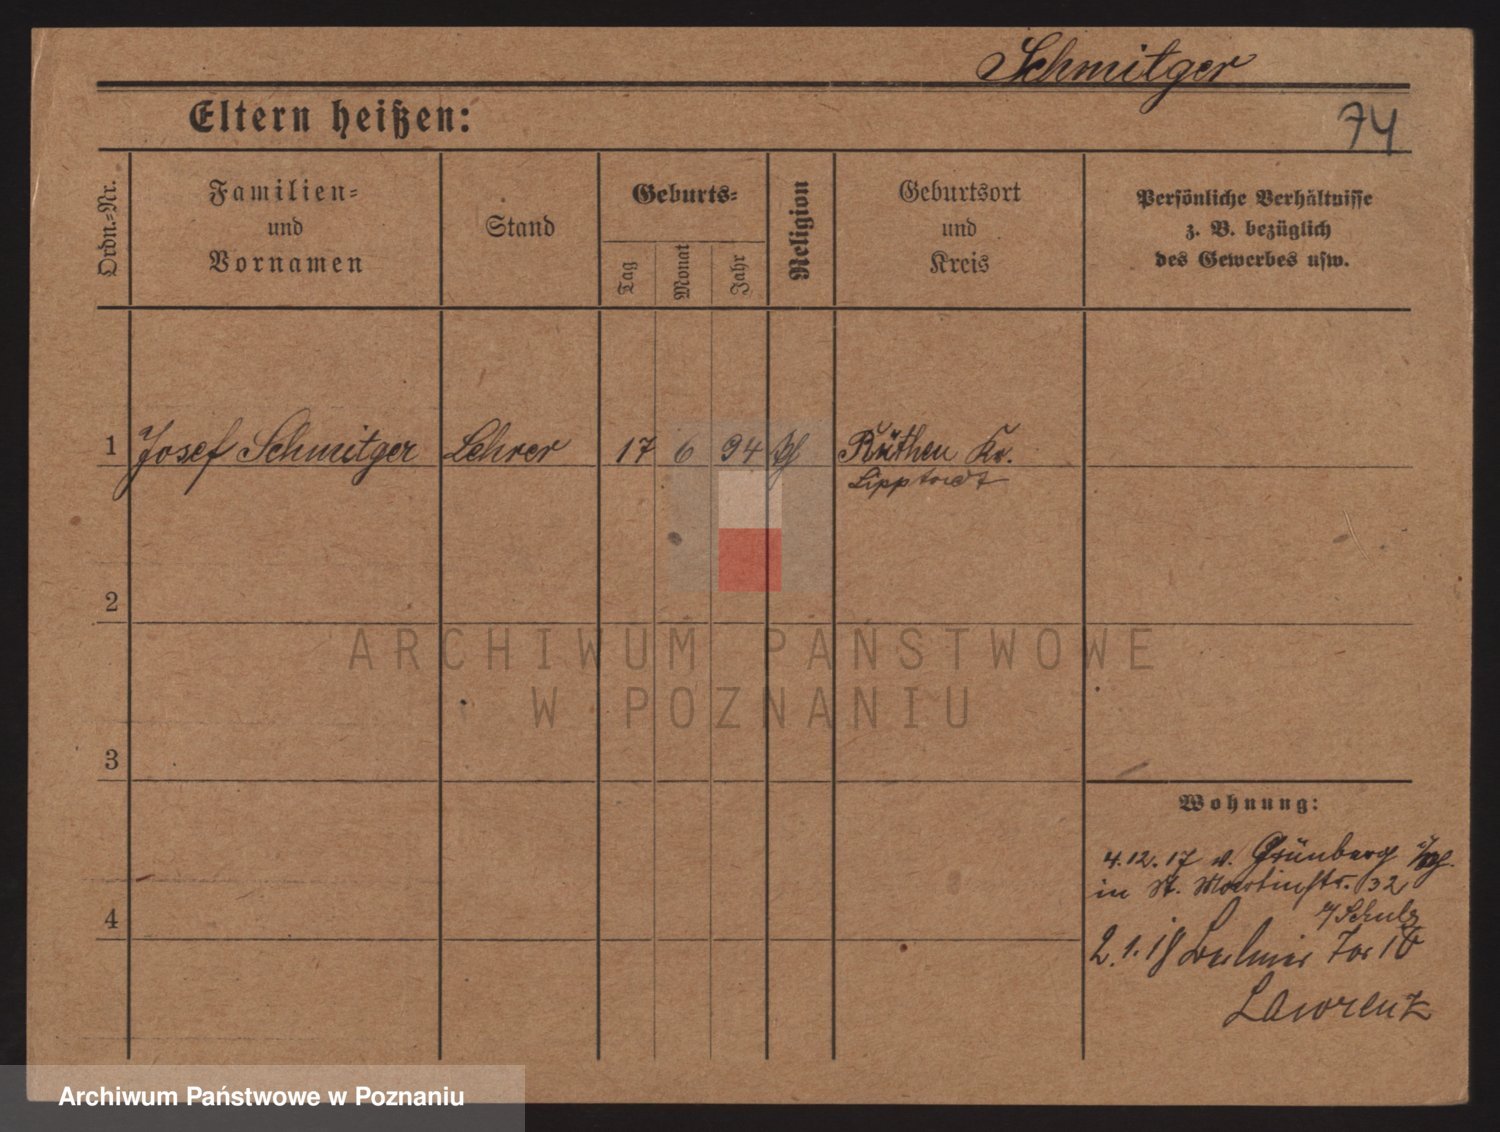 Schmitger
Eltern heißen:
74
Ordn.-Nr.
Familien-
und
Vornamen
Stand
Geburts-
Tag
Monat
Jahr
Religion
Geburtsort
und
Kreis
Persönliche Verhältnisse
z. B. bezüglich
des Gewerbes usw.
1 Josef Schmitger Lehrer 17 6 94 Rüthen Kr.
Lippstadt
2
ARCHIWUM PAŃSTWOWE
W POZNANIU
3
Wohnung:
4.12.17 v. Grünberg
in St. Martinstr. 32
b/Schulz
4
2.1.18 Berliner Tor 10
Lawrenz
Archiwum Państwowe w Poznaniu